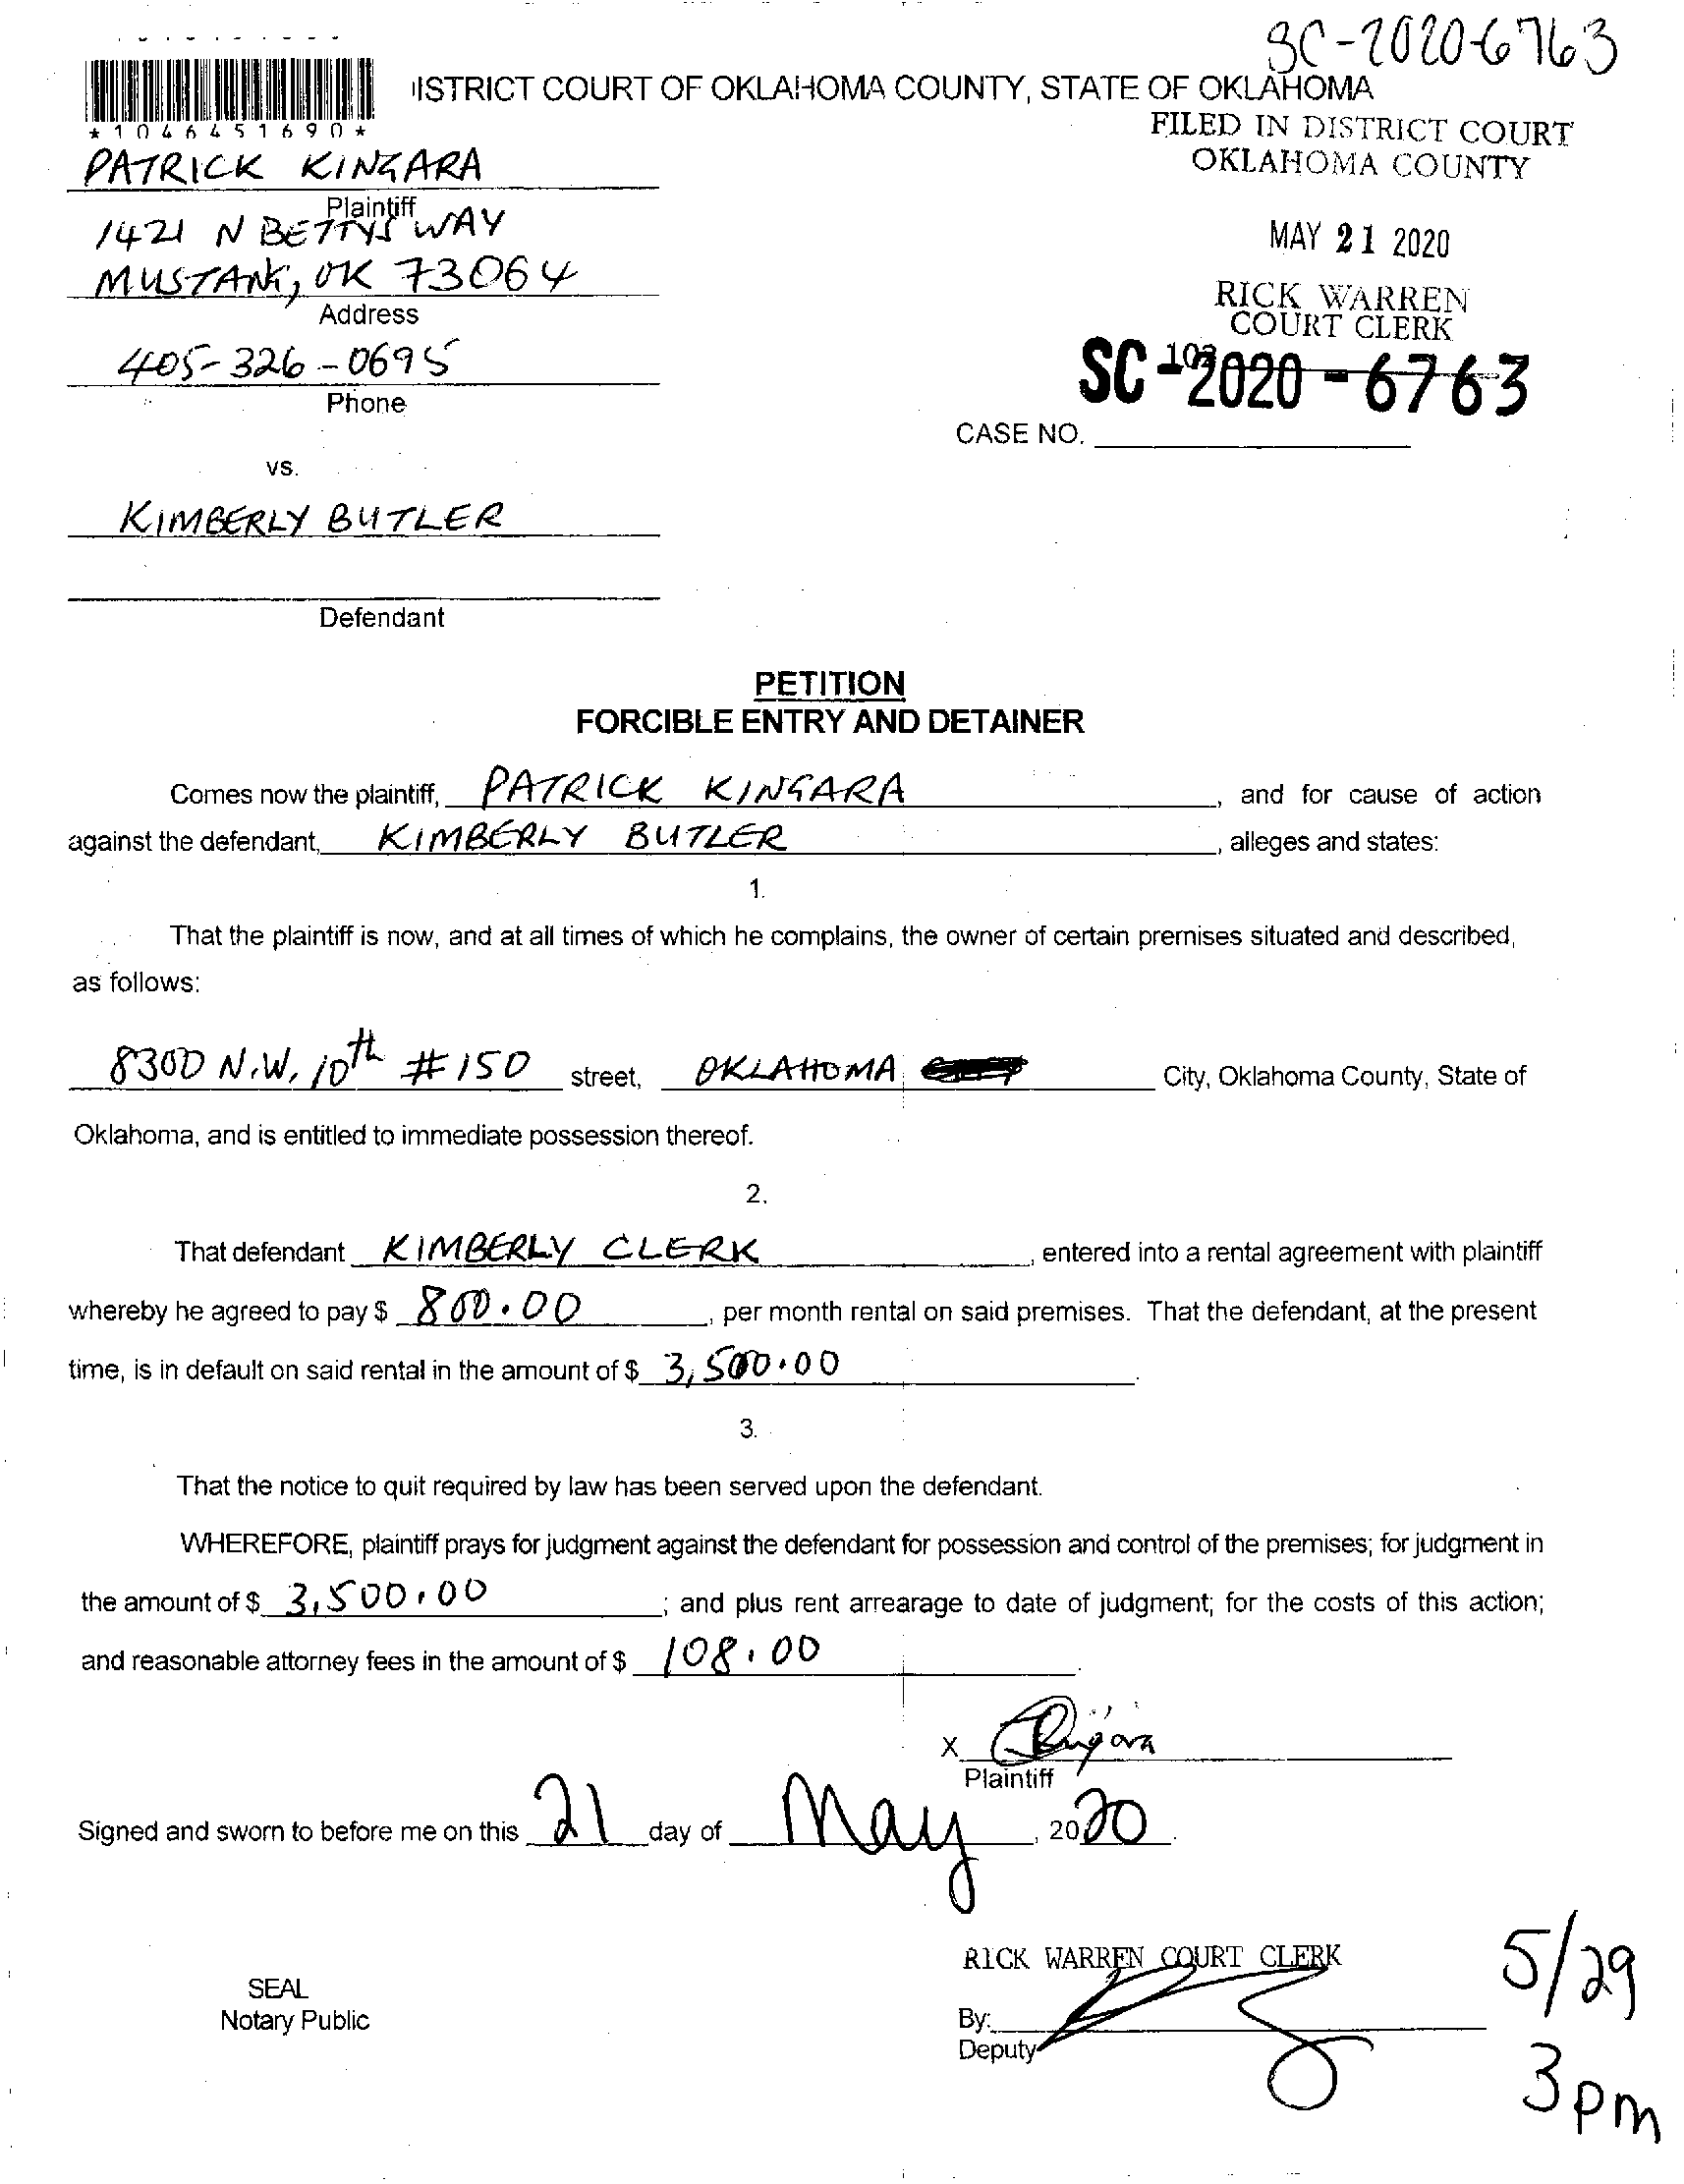 SC-2020-6763
ISTRICT COURT OF OKLAHOMA COUNTY, STATE OF OKLAHOMA
*1046451690*
FILED IN DISTRICT COURT
OKLAHOMA COUNTY
PATRICK KINGARA
Plaintiff
1421 N BETTYS WAY
MUSTANG, OK 73064
Address
MAY 21 2020
RICK WARREN
COURT CLERK
405-326-0695
Phone
102
SC-2020-6763
CASE NO.
vs.
KIMBERLY BUTLER
Defendant
PETITION
FORCIBLE ENTRY AND DETAINER
Comes now the plaintiff, PATRICK KINGARA, and for cause of action
against the defendant, KIMBERLY BUTLER, alleges and states:
1.
That the plaintiff is now, and at all times of which he complains, the owner of certain premises situated and described,
as follows:
8300 N.W. 10th #150 street, OKLAHOMA City, Oklahoma County, State of
Oklahoma, and is entitled to immediate possession thereof.
2.
That defendant KIMBERLY CLERK, entered into a rental agreement with plaintiff
whereby he agreed to pay $ 800.00, per month rental on said premises. That the defendant, at the present
time, is in default on said rental in the amount of $ 3,500.00.
3.
That the notice to quit required by law has been served upon the defendant.
WHEREFORE, plaintiff prays for judgment against the defendant for possession and control of the premises; for judgment in
the amount of $ 3,500.00; and plus rent arrearage to date of judgment; for the costs of this action;
and reasonable attorney fees in the amount of $ 108.00.
X
Plaintiff
Signed and sworn to before me on this 21 day of May, 2020.
RICK WARREN COURT CLERK
SEAL
Notary Public
By:
Deputy
5/29
3pm